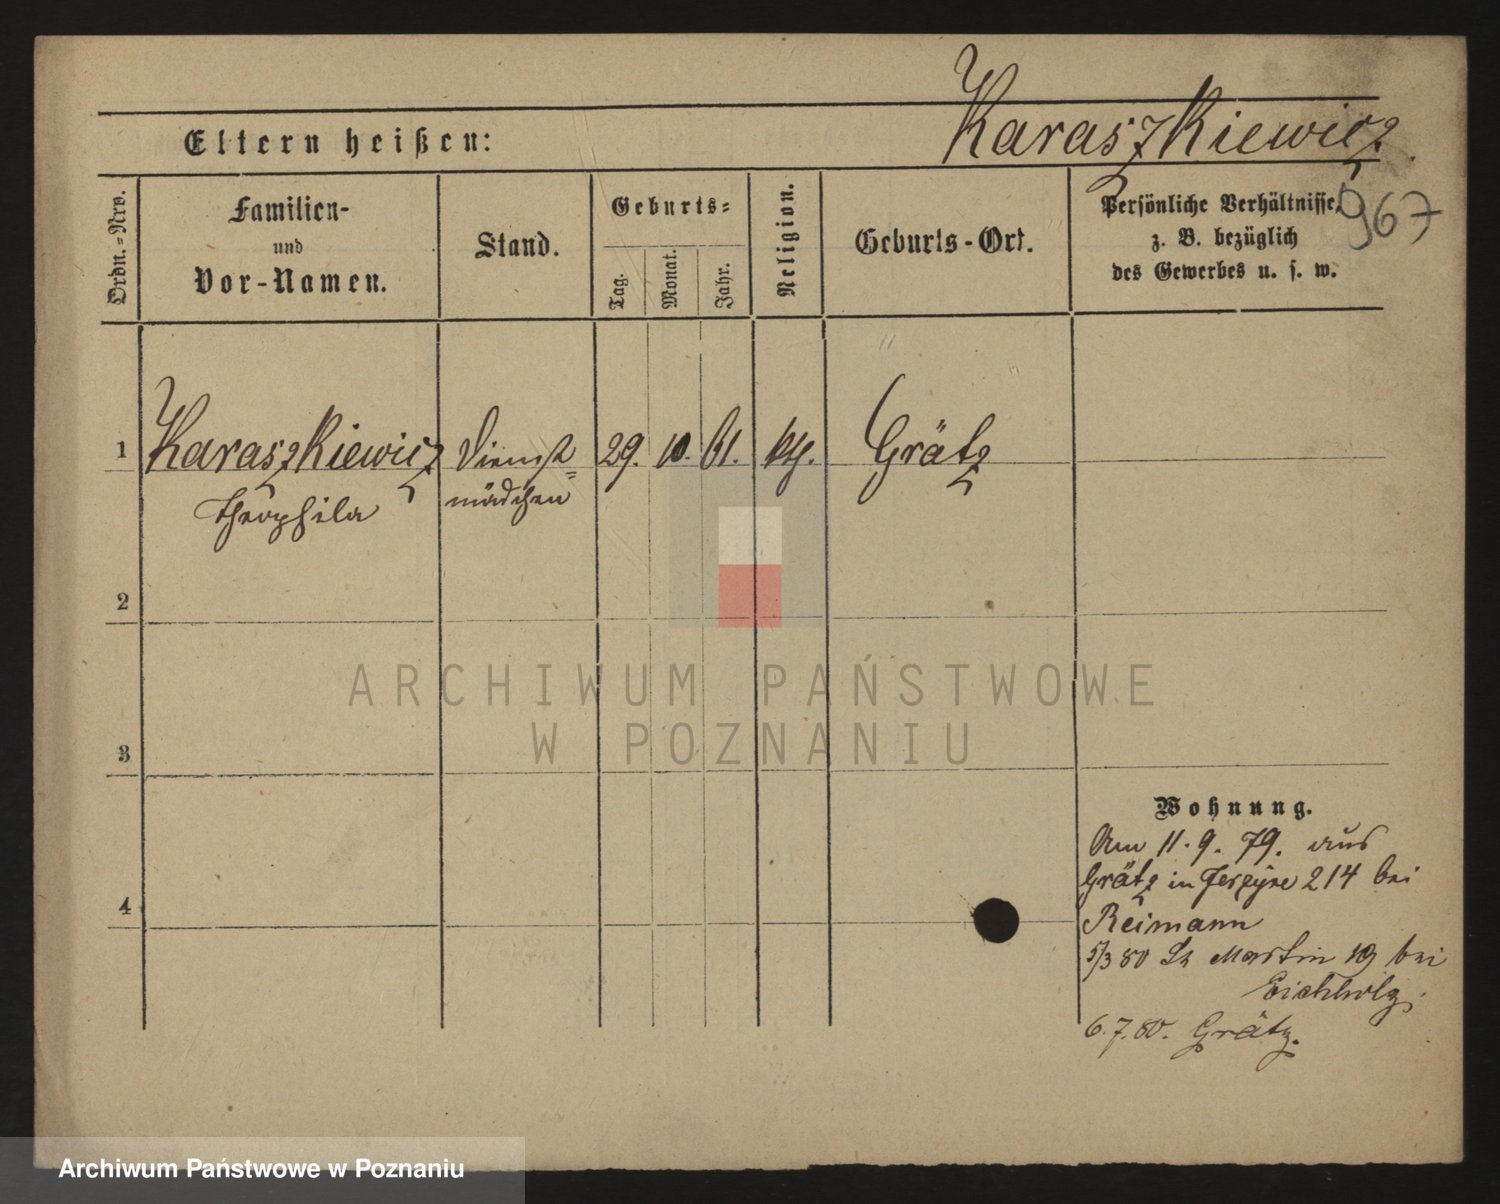 Karaszkiewicz.
Eltern heißen:
967
Ordn.=Nro.
Familien-
und
Vor-Namen.
Stand.
Geburts=
Tag.
Monat.
Jahr.
Religion.
Geburts-Ort.
Persönliche Verhältnisse
z. B. bezüglich
des Gewerbes u. s. w.
1 Karaszkiewicz Dienst= 29. 10. 61. kth. Grätz
Theophila mädchen
2
ARCHIWUM PAŃSTWOWE
W POZNANIU
3
Wohnung.
Am 11. 9. 79. aus
Grätz in 214 bei
4
Reimann
5/3 80 St Martin 19 bei
Eichholz.
6. 7. 80. Grätz.
Archiwum Państwowe w Poznaniu